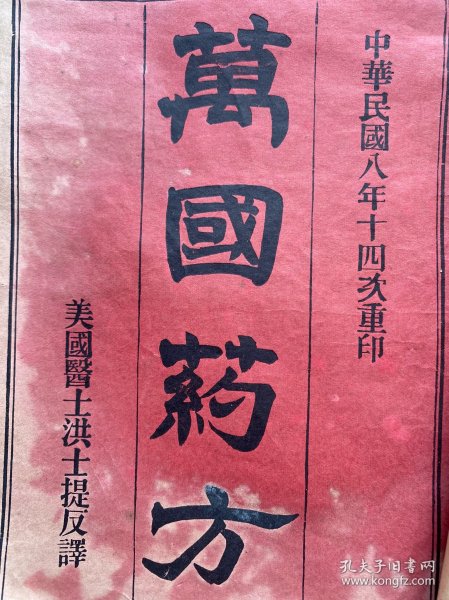 中華民國八年十四次重印
萬國葯方
美國醫士洪士提反譯
孔夫子旧书网
www.kongfz.com